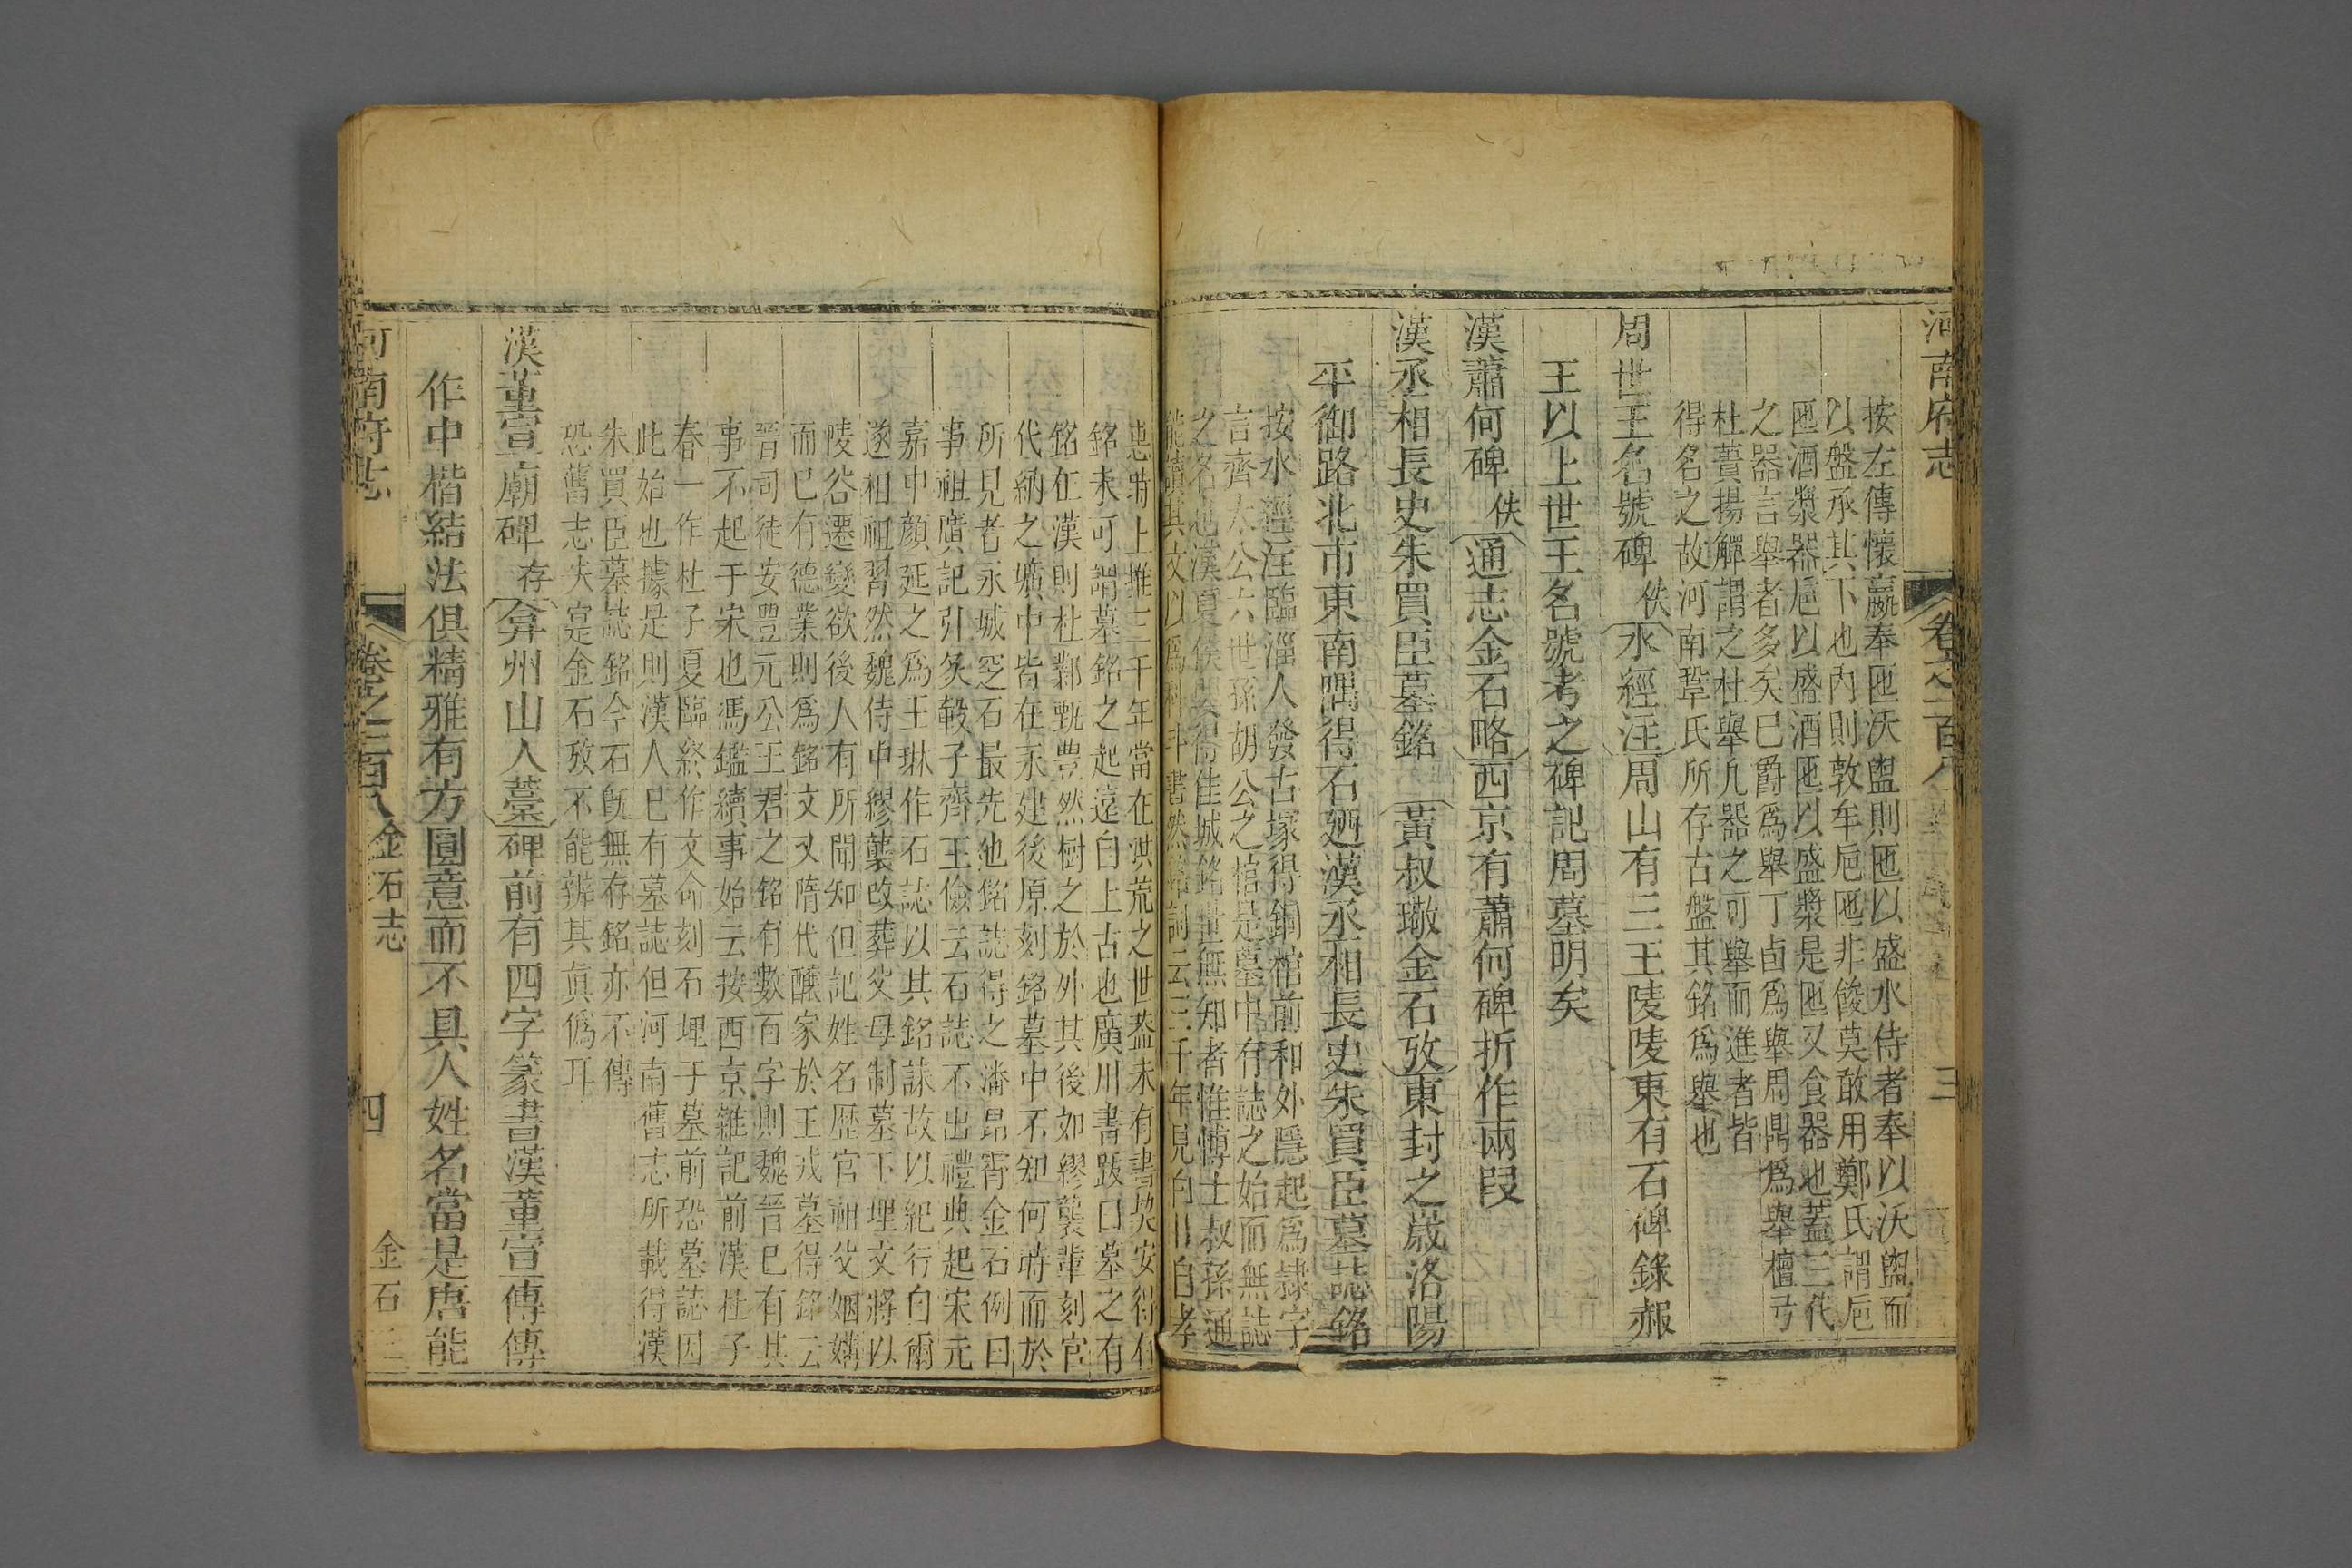 河南府志
卷之一百八
三
按左傳懷嬴奉匜沃盥則匜以盛水侍者奉以沃盥而
以盤承其下也內則敦牟巵匜非餕莫敢用鄭氏謂巵
匜酒漿器巵以盛酒匜以盛漿是匜又食器也蓋三代
之器言舉者多矣巳爵爲舉丁卣爲舉周鼎爲舉檀弓
杜蕢揚觶謂之杜舉凡器之可舉而進者皆
得名之故河南鞏氏所存古盤其銘爲舉也
周世王名號碑 佚 水經注周山有三王陵陵東有石碑錄赧
王以上世王名號考之碑記周墓明矣
漢蕭何碑 佚 通志金石略西京有蕭何碑折作兩段
漢丞相長史朱買臣墓銘 黃叔璥金石攷東封之歲洛陽
平御路北市東南隅得石廼漢丞相長史朱買臣墓誌銘
按水經注臨淄人發古塚得銅棺前和外隱起爲隷字
言齊太公六世孫胡公之棺是墓中有誌之始而無誌
之名也漢夏侯嬰得佳城銘世無知者惟博士叔孫通
能讀其文以爲科斗書然銘詞云三千年見白日自孝
惠時上推三千年當在洪荒之世蓋未有書契安得有
銘未可謂墓銘之起遠自上古也廣川書跋曰墓之有
銘在漢則杜鄴甄豊然樹之於外其後如繆襲輩刻官
代納之壙中皆在永建後原刻銘墓中不知何時而於
所見者永城窆石最先他銘誌得之潘昂霄金石例曰
事祖廣記引炙轂子齊王儉云石誌不出禮典起宋元
嘉中顔延之爲王琳作石誌以其銘誄故以紀行自爾
遂相祖習然魏侍中繆襲改葬父母制墓下埋文將以
陵谷遷變欲後人有所聞知但記姓名歷官祖父姻媾
而已有德業則爲銘文又隋代釀家於王戎墓得銘云
晉司徒安豊元公王君之銘有數百字則魏晉已有其
事不起于宋也馮鑑續事始云按西京雜記前漢杜子
春一作杜子夏臨終作文命刻石埋于墓前恐墓誌因
此始也據是則漢人已有墓誌但河南舊志所載得漢
朱買臣墓誌銘今石旣無存銘亦不傳
恐舊志失寔金石攷不能辨其眞僞耳
漢董宣廟碑 存 弇州山人藁碑前有四字篆書漢董宣傳傳
作中楷結法俱精雅有方圓意而不具人姓名當是唐能
河南府志
卷之一百八
金石志
四
金石三